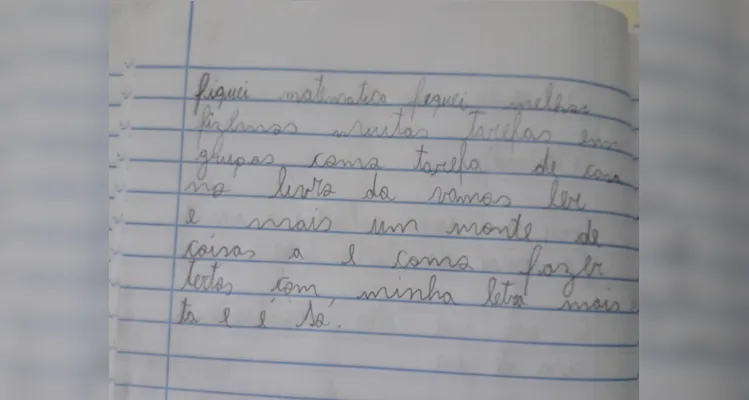 fiquei matematica fequei melhor
fizemos muitas tarefas em
grupos como tarefa de casa
no livro da vamos ler
e mais um monte de
coisas a e como fazer
textos com minha letra mais
ta e é só.